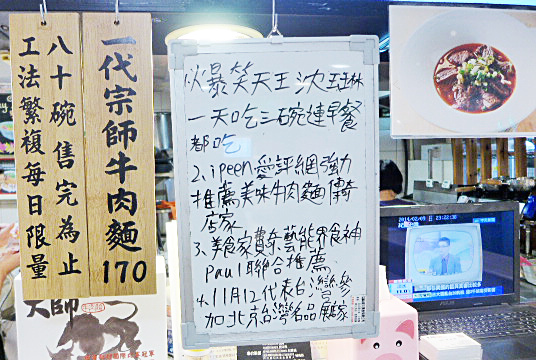 一代宗師牛肉麵 170
八十碗售完為止
工法繁複每日限量
大師
以爆笑天王沈玉琳
一天吃三碗連早餐
都吃
2. ipeen愛評網強力
推薦美味牛肉麵傳奇
店家
3. 美食家費奇藝能界食神
Paul聯合推薦
4. 11月12代表台灣參
加北京台灣名品展店家
2014/02/09 日 23:22:36